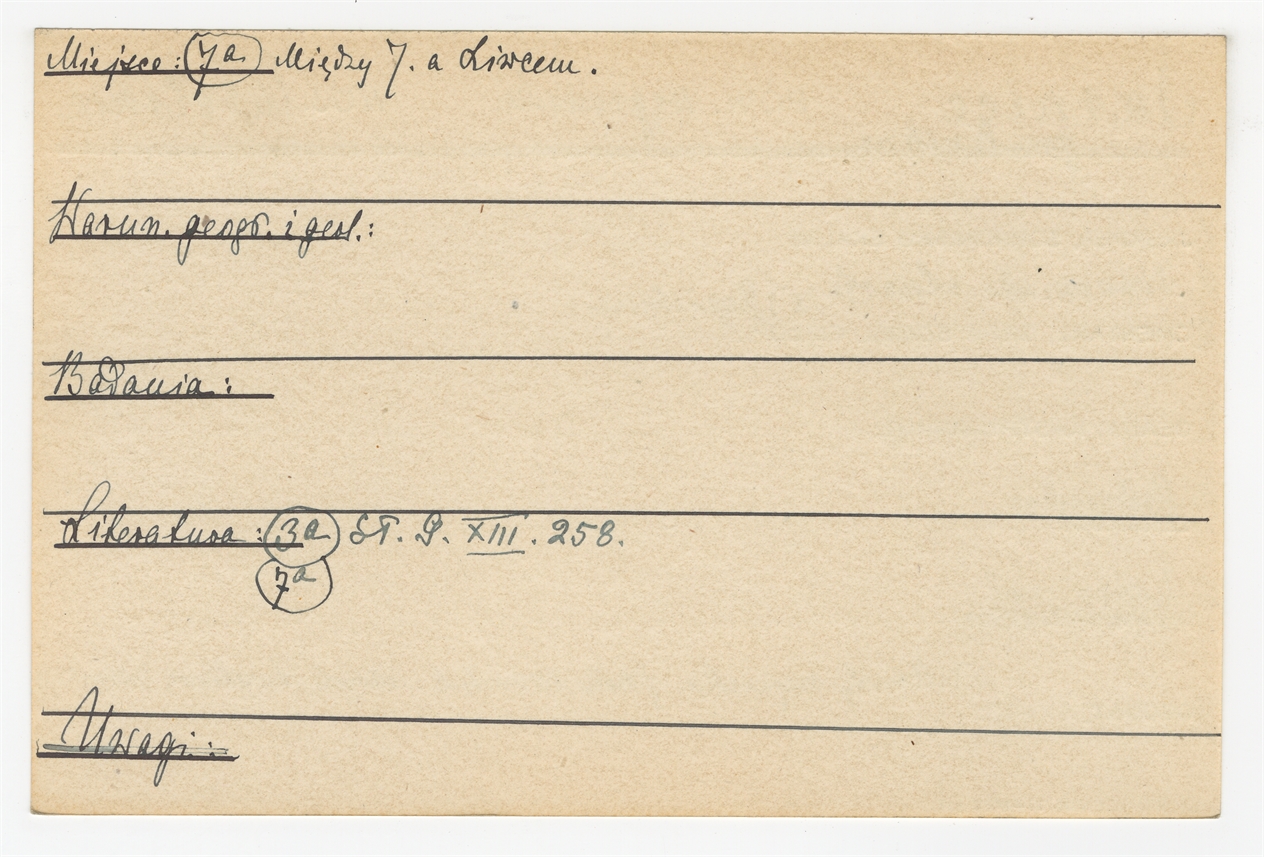 Miejsce: 7a Między J. a Liwcem.
Warun. geogr. i geol.:
Badania:
Literatura: 3a St. P. XIII. 258.
7a
Uwagi: